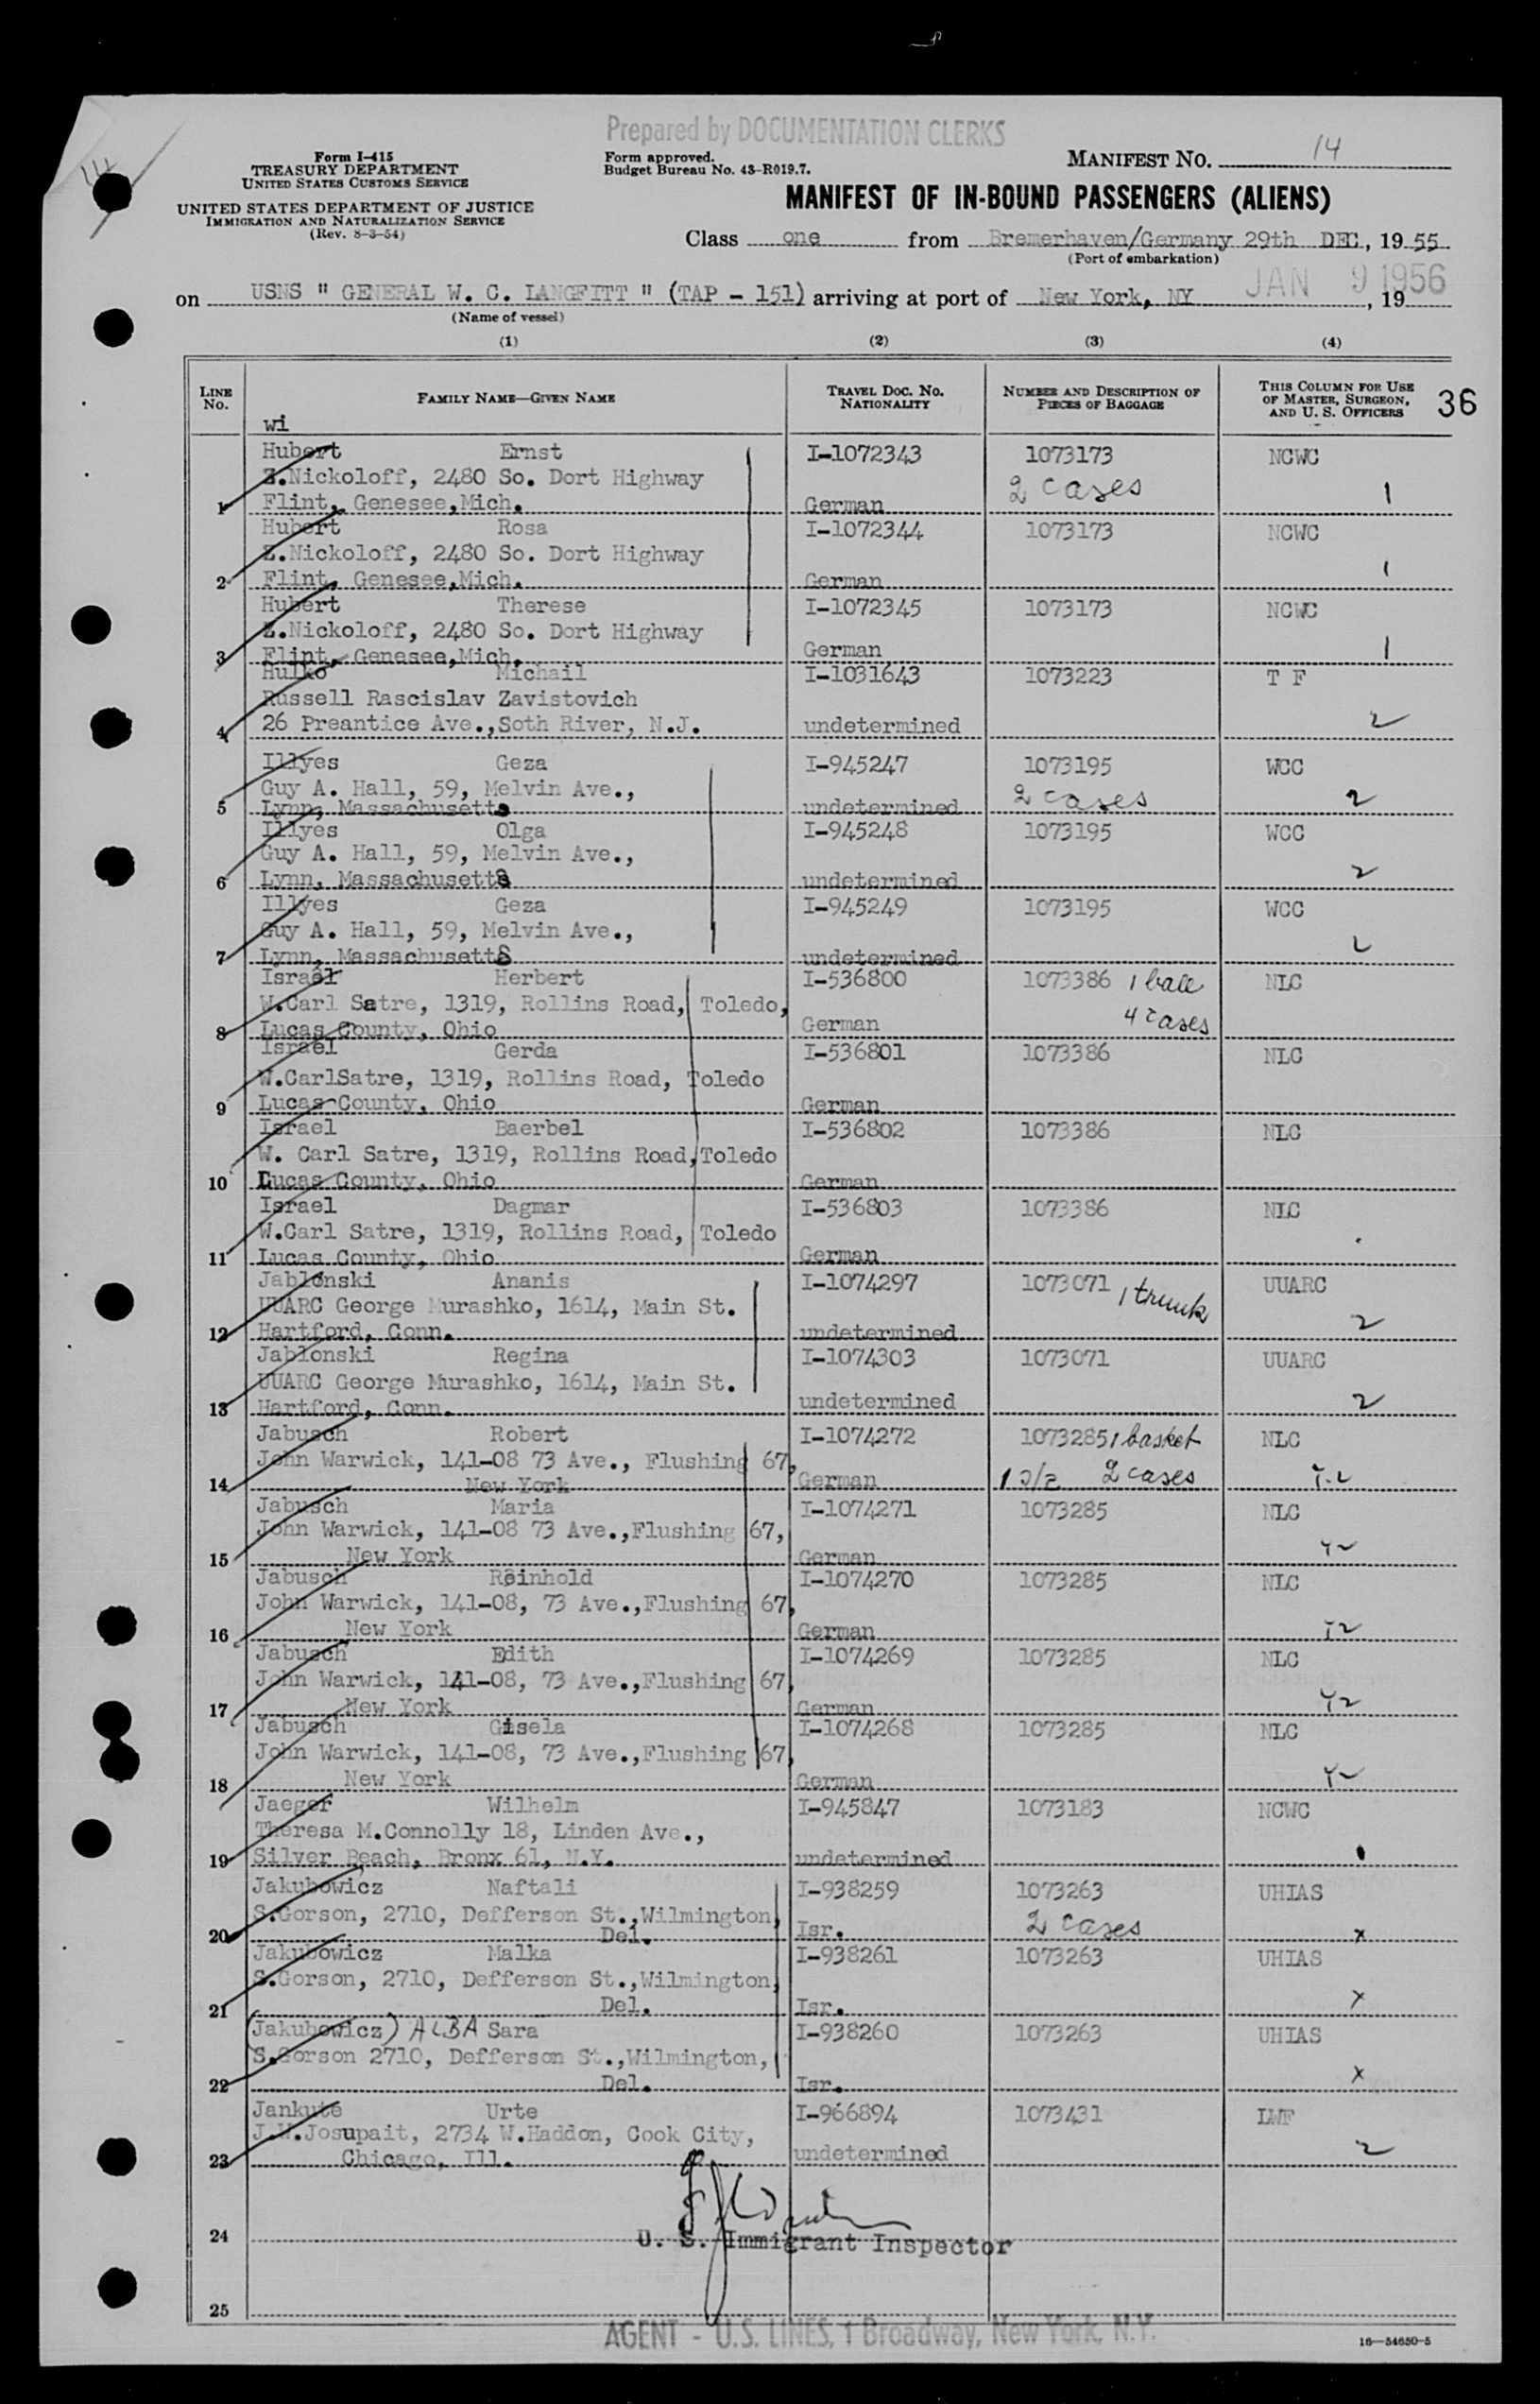 Prepared by DOCUMENTATION CLERKS
14
Form I-415
TREASURY DEPARTMENT
UNITED STATES CUSTOMS SERVICE
UNITED STATES DEPARTMENT OF JUSTICE
IMMIGRATION AND NATURALIZATION SERVICE
(Rev. 8-3-54)
Form approved.
Budget Bureau No. 43-R019.7.
MANIFEST NO. 14
MANIFEST OF IN-BOUND PASSENGERS (ALIENS)
Class one from Bremerhaven/Germany 29th DEC, 19 55
(Port of embarkation)
on USNS " GENERAL W. C. LANGFITT " (TAP - 151) arriving at port of New York, NY JAN 9 1956, 19
(Name of vessel)
(1) (2) (3) (4)
LINE NO. FAMILY NAME—GIVEN NAME TRAVEL DOC. NO. NATIONALITY NUMBER AND DESCRIPTION OF PIECES OF BAGGAGE THIS COLUMN FOR USE OF MASTER, SURGEON, AND U. S. OFFICERS 36
wi
Hubert Ernst I-1072343 1073173 NCWC
Z.Nickoloff, 2480 So. Dort Highway 2 cases
1 Flint, Genesee,Mich. German 1
Hubert Rosa I-1072344 1073173 NCWC
Z.Nickoloff, 2480 So. Dort Highway
2 Flint, Genesee,Mich. German 1
Hubert Therese I-1072345 1073173 NCWC
Z.Nickoloff, 2480 So. Dort Highway
3 Flint, Genesee,Mich. German 1
Hulko Michail I-1031643 1073223 T F
Russell Rascislav Zavistovich
4 26 Preantice Ave.,Soth River, N.J. undetermined 2
Illyes Geza I-945247 1073195 WCC
Guy A. Hall, 59, Melvin Ave., 2 cases
5 Lynn, Massachusetts undetermined 2
Illyes Olga I-945248 1073195 WCC
Guy A. Hall, 59, Melvin Ave.,
6 Lynn, Massachusetts undetermined 2
Illyes Geza I-945249 1073195 WCC
Guy A. Hall, 59, Melvin Ave.,
7 Lynn, Massachusetts undetermined 2
Israel Herbert I-536800 1073386 1 bale NLC
W.Carl Satre, 1319, Rollins Road, Toledo, 4 cases
8 Lucas County, Ohio German
Israel Gerda I-536801 1073386 NLC
W.CarlSatre, 1319, Rollins Road, Toledo
9 Lucas County, Ohio German
Israel Baerbel I-536802 1073386 NLC
W. Carl Satre, 1319, Rollins Road,Toledo
10 Lucas County, Ohio German
Israel Dagmar I-536803 1073386 NLC
W.Carl Satre, 1319, Rollins Road, Toledo
11 Lucas County, Ohio German
Jablonski Ananis I-1074297 1073071 1 trunk UUARC
UUARC George Murashko, 1614, Main St.
12 Hartford, Conn. undetermined 2
Jablonski Regina I-1074303 1073071 UUARC
UUARC George Murashko, 1614, Main St.
13 Hartford, Conn. undetermined 2
Jabusch Robert I-1074272 1073285 1 basket NLC
John Warwick, 141-08 73 Ave., Flushing 67,
14 New York German 2 cases
Jabusch Maria I-1074271 1073285 NLC
John Warwick, 141-08 73 Ave.,Flushing 67,
15 New York German
Jabusch Reinhold I-1074270 1073285 NLC
John Warwick, 141-08, 73 Ave.,Flushing 67,
16 New York German
Jabusch Edith I-1074269 1073285 NLC
John Warwick, 141-08, 73 Ave.,Flushing 67,
17 New York German
Jabusch Gisela I-1074268 1073285 NLC
John Warwick, 141-08, 73 Ave.,Flushing 67,
18 New York German
Jaeger Wilhelm I-945847 1073183 NCWC
Theresa M.Connolly 18, Linden Ave.,
19 Silver Beach, Bronx 61, N.Y. undetermined
Jakubowicz Naftali I-938259 1073263 UHIAS
S.Gorson, 2710, Defferson St.,Wilmington, 2 cases
20 Del. Isr. x
Jakubowicz Malka I-938261 1073263 UHIAS
S.Gorson, 2710, Defferson St.,Wilmington,
21 Del. Isr. x
(Jakubowicz) ALBA Sara I-938260 1073263 UHIAS
S.Gorson 2710, Defferson St.,Wilmington,
22 Del. Isr. x
Jankute Urte I-966894 1073431 LWF
J.W.Josupait, 2734 W.Haddon, Cook City,
23 Chicago, Ill. undetermined 2
24
U. S. Immigrant Inspector
25
AGENT - U.S. LINES, 1 Broadway, New York, N.Y.
16—54650-5